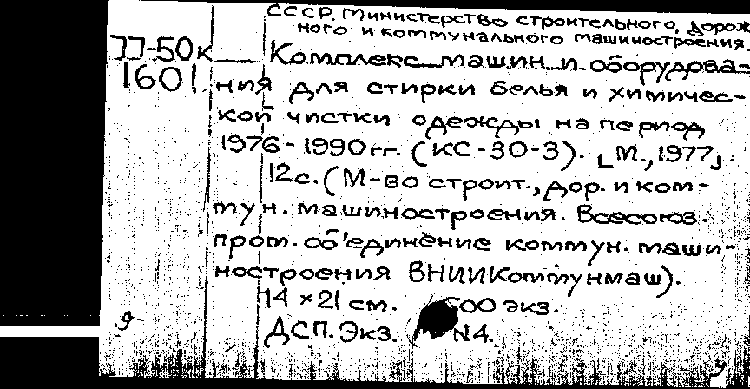 СССР. Министерство строительного, дорож
ного и коммунального машиностроения.
77-50к Комплекс машин и оборудова-
1601 ния для стирки белья и химичес-
кой чистки одежды на период
1976-1990 гг. (КС-30-3). [М., 1977].
12 с. (М-во строит., дор. и ком-
мун. машиностроения. Всесоюз.
пром. об'единение коммун. маши-
ностроения ВНИИКоммунмаш).
14 × 21 см. 500 экз.
ДСП. Экз. N4.